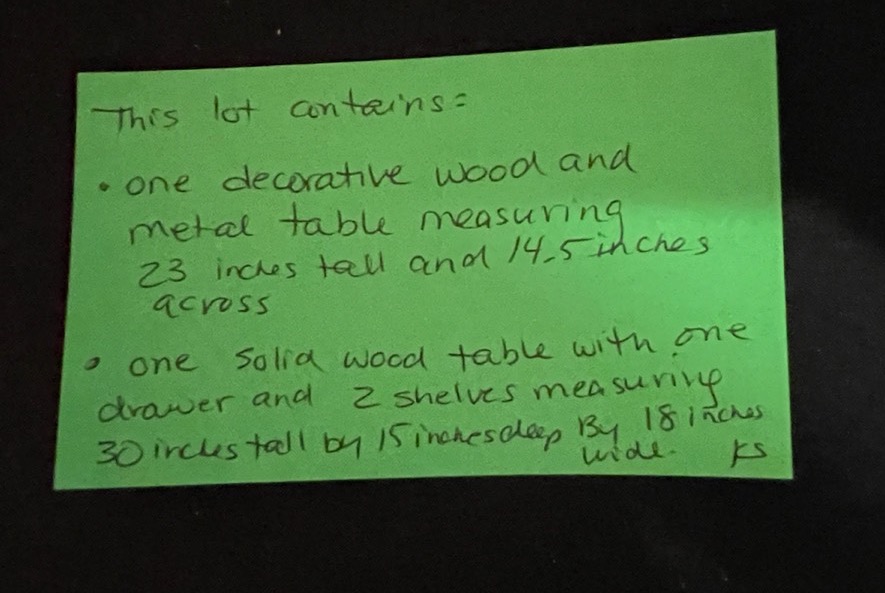 This lot contains:
• one decorative wood and
metal table measuring
23 inches tall and 14.5 inches
across
• one solid wood table with one
drawer and 2 shelves measuring
30 inches tall by 15 inches deep By 18 inches
wide. KS